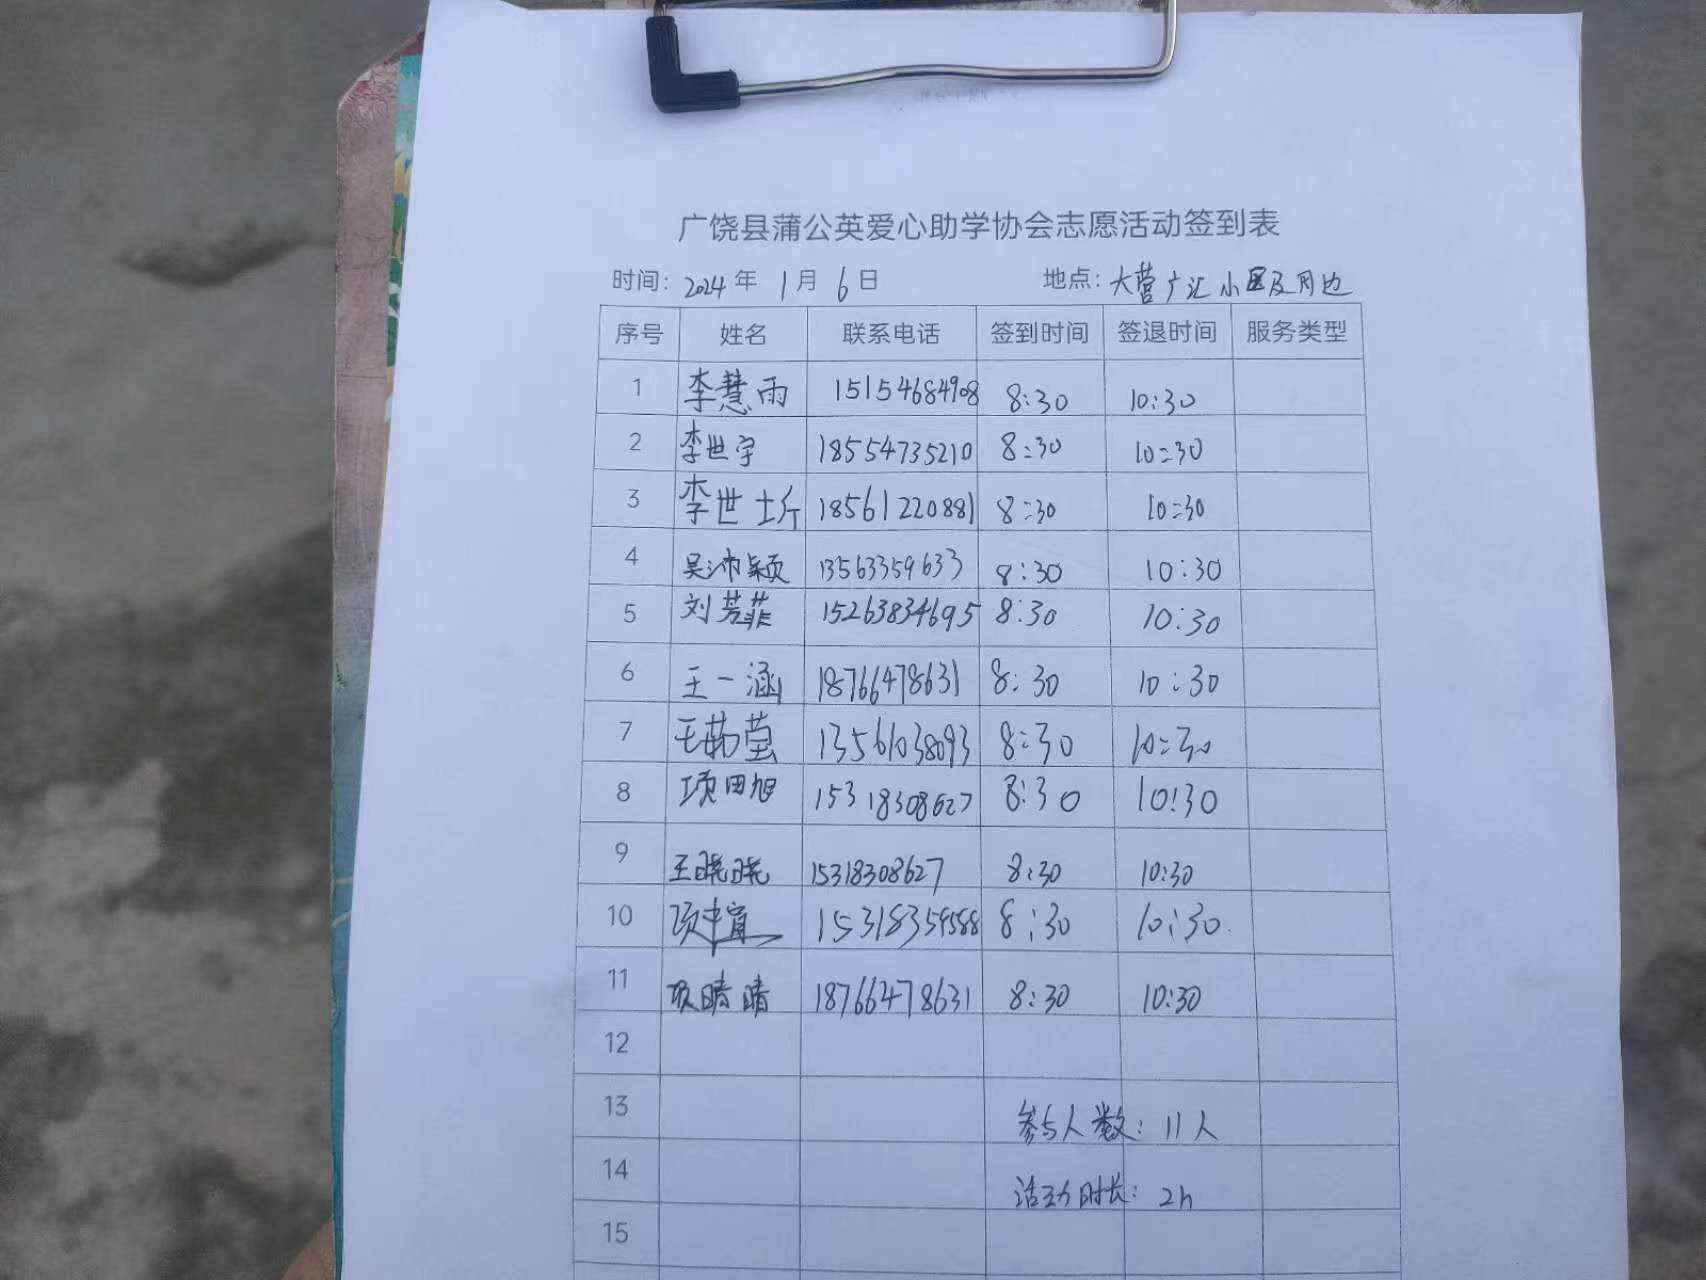 广饶县蒲公英爱心助学协会志愿活动签到表
时间: 2024 年 1 月 6 日 地点: 大营广汇小区及周边
序号 姓名 联系电话 签到时间 签退时间 服务类型
1 李慧雨 15154684908 8:30 10:30
2 李世宇 18554735210 8:30 10:30
3 李世圻 18561220881 8:30 10:30
4 吴沛颖 13563359633 8:30 10:30
5 刘芳菲 15263834695 8:30 10:30
6 王一涵 18766478631 8:30 10:30
7 王茹莹 13561038093 8:30 10:30
8 项田旭 15318308627 8:30 10:30
9 王晓晓 15318308627 8:30 10:30
10 15318359588 8:30 10:30
11 项晴晴 18766478631 8:30 10:30
12
13 参与人数: 11人
14 活动时长: 2h
15